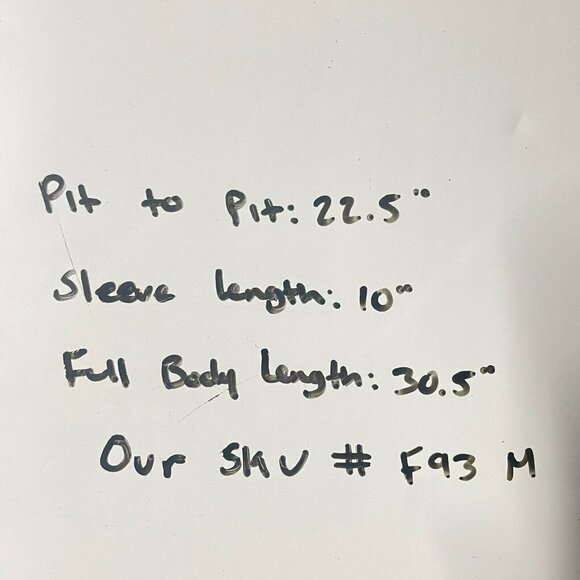 Pit to Pit: 22.5"
Sleeve Length: 10"
Full Body Length: 30.5"
Our SKU # F93 M